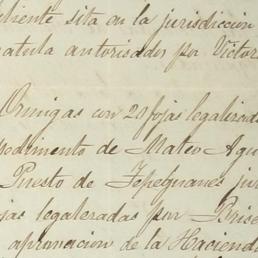 diente sita en la jurisdiccion
autorisados por Victor
Ormigas con 20 fojas legalizadas
pedimento de Mateo Agu
Puesto de Tepeguanes jur
jas legaleradas por Brise
aprovacion de la Haciend